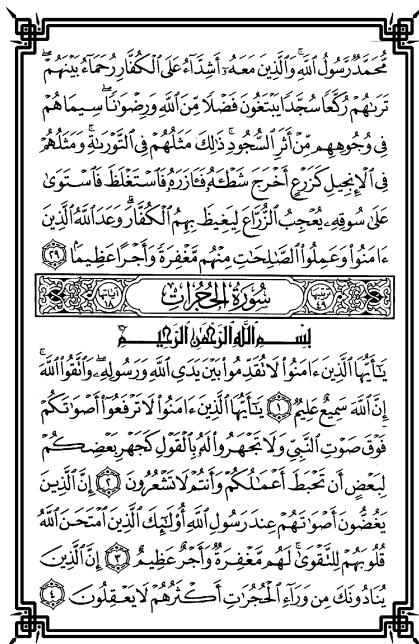 مُّحَمَّدٌ رَّسُولُ ٱللَّهِۚ وَٱلَّذِينَ مَعَهُۥٓ أَشِدَّآءُ عَلَى ٱلۡكُفَّارِ رُحَمَآءُ بَيۡنَهُمۡۖ
تَرَىٰهُمۡ رُكَّعٗا سُجَّدٗا يَبۡتَغُونَ فَضۡلٗا مِّنَ ٱللَّهِ وَرِضۡوَٰنٗاۖ سِيمَاهُمۡ
فِي وُجُوهِهِم مِّنۡ أَثَرِ ٱلسُّجُودِۚ ذَٰلِكَ مَثَلُهُمۡ فِي ٱلتَّوۡرَىٰةِۚ وَمَثَلُهُمۡ
فِي ٱلۡإِنجِيلِ كَزَرۡعٍ أَخۡرَجَ شَطۡـَٔهُۥ فَـَٔازَرَهُۥ فَٱسۡتَغۡلَظَ فَٱسۡتَوَىٰ
عَلَىٰ سُوقِهِۦ يُعۡجِبُ ٱلزُّرَّاعَ لِيَغِيظَ بِهِمُ ٱلۡكُفَّارَۗ وَعَدَ ٱللَّهُ ٱلَّذِينَ
ءَامَنُواْ وَعَمِلُواْ ٱلصَّٰلِحَٰتِ مِنۡهُم مَّغۡفِرَةٗ وَأَجۡرًا عَظِيمَۢا ٢٩
ترتيبها ٤٩ سُورَةُ الحُجُرَاتِ آياتها ١٨
بِسۡمِ ٱللَّهِ ٱلرَّحۡمَٰنِ ٱلرَّحِيمِ
يَٰٓأَيُّهَا ٱلَّذِينَ ءَامَنُواْ لَا تُقَدِّمُواْ بَيۡنَ يَدَيِ ٱللَّهِ وَرَسُولِهِۦۖ وَٱتَّقُواْ ٱللَّهَۚ
إِنَّ ٱللَّهَ سَمِيعٌ عَلِيمٞ ١ يَٰٓأَيُّهَا ٱلَّذِينَ ءَامَنُواْ لَا تَرۡفَعُوٓاْ أَصۡوَٰتَكُمۡ
فَوۡقَ صَوۡتِ ٱلنَّبِيِّ وَلَا تَجۡهَرُواْ لَهُۥ بِٱلۡقَوۡلِ كَجَهۡرِ بَعۡضِكُمۡ
لِبَعۡضٍ أَن تَحۡبَطَ أَعۡمَٰلُكُمۡ وَأَنتُمۡ لَا تَشۡعُرُونَ ٢ إِنَّ ٱلَّذِينَ
يَغُضُّونَ أَصۡوَٰتَهُمۡ عِندَ رَسُولِ ٱللَّهِ أُوْلَٰٓئِكَ ٱلَّذِينَ ٱمۡتَحَنَ ٱللَّهُ
قُلُوبَهُمۡ لِلتَّقۡوَىٰۚ لَهُم مَّغۡفِرَةٞ وَأَجۡرٌ عَظِيمٌ ٣ إِنَّ ٱلَّذِينَ
يُنَادُونَكَ مِن وَرَآءِ ٱلۡحُجُرَٰتِ أَكۡثَرُهُمۡ لَا يَعۡقِلُونَ ٤